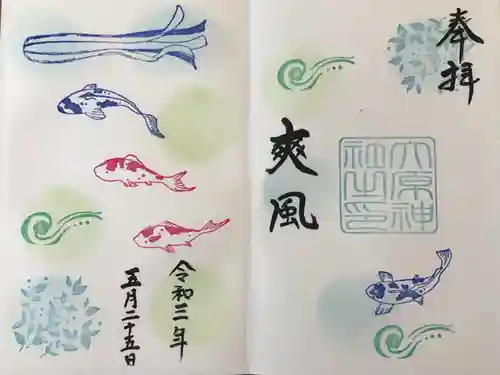 奉拝
爽風
大原神社之印
令和三年
五月二十五日